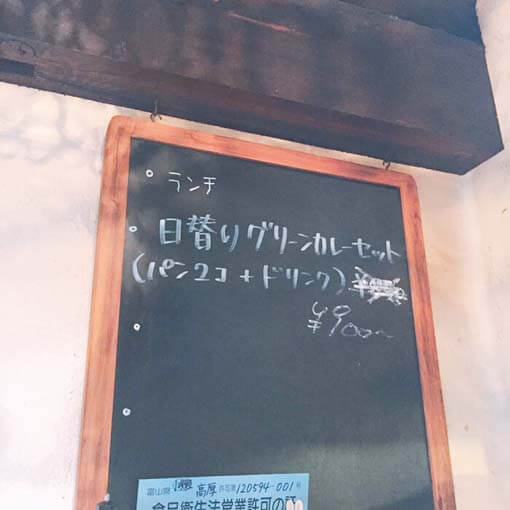 ランチ
日替りグリーンカレーセット
(パン2コ + ドリンク)
¥900〜
富山県 高厚 許可第120594-001号
食品衛生法営業許可の